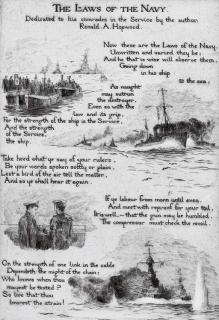 THE LAWS OF THE NAVY.
Dedicated to his comrades in the Service by the author.
Ronald A. Hopwood.
Now these are the Laws of the Navy,
Unwritten and varied they be;
And he that is wise will observe them,
Going down
in his ship
to the sea;
As naught
may outrun
the destroyer,
Even so with the
law and its grip,
For the strength of the ship is the Service,
And the strength
of the Service,
the ship.
Take heed what ye say of your rulers,
Be your words spoken softly or plain,
Lest a bird of the air tell the matter,
And so ye shall hear it again.
If ye labour from morn until even,
And meet with reproof for your toil,
It is well, — that the gun may be humbled,
The compressor must check the recoil.
On the strength of one link in the cable
Dependeth the might of the chain;
Who knows when thou
mayest be tested?
So live that thou
bearest the strain!